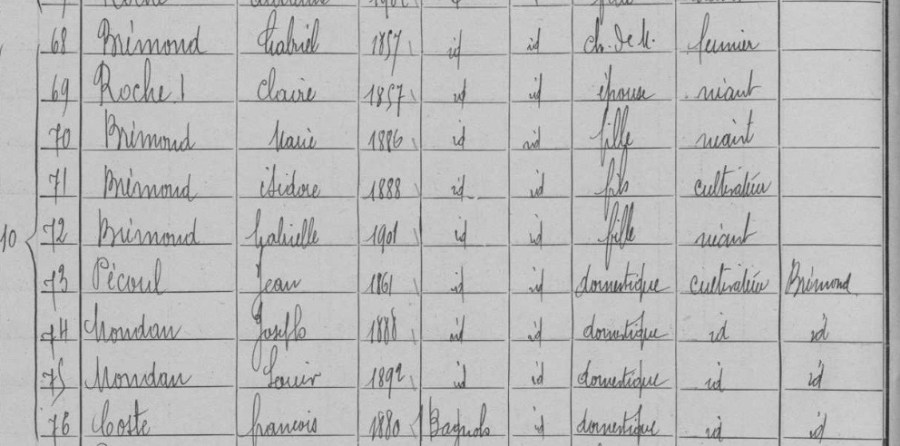 68 Brémond Gabriel 1857 id id ch. de m. fermier
69 Roche Claire 1857 id id épouse néant
70 Brémond Marie 1886 id id fille néant
71 Brémond Isidore 1888 id id fils cultivateur
10 72 Brémond Gabrielle 1901 id id fille néant
73 Pécoul Jean 1861 id id domestique cultivateur Brémond
74 Moudan Joseph 1888 id id domestique id id
75 Moudan Louis 1892 id id domestique id id
76 Coste François 1880 Bagnols id domestique id id